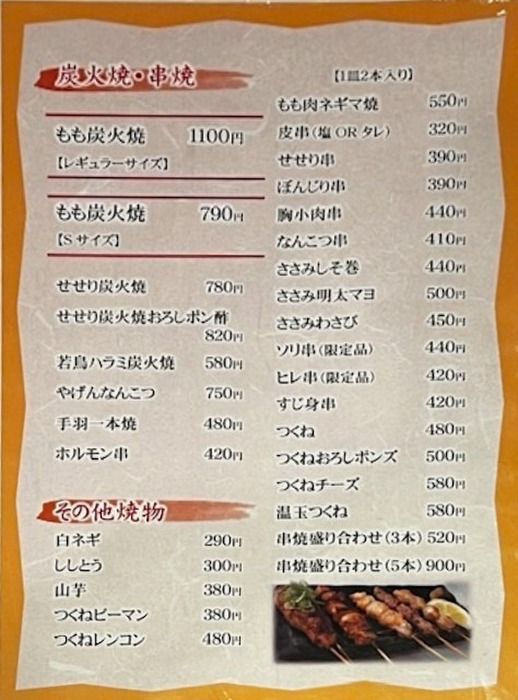 炭火焼・串焼
もも炭火焼 1100円
【レギュラーサイズ】
もも炭火焼 790円
【Sサイズ】
せせり炭火焼 780円
せせり炭火焼おろしポン酢
820円
若鳥ハラミ炭火焼 580円
やげんなんこつ 750円
手羽一本焼 480円
ホルモン串 420円
その他焼物
白ネギ 290円
ししとう 300円
山芋 380円
つくねピーマン 380円
つくねレンコン 480円
【1皿2本入り】
もも肉ネギマ焼 550円
皮串(塩 OR タレ) 320円
せせり串 390円
ぼんじり串 390円
胸小肉串 440円
なんこつ串 410円
ささみしそ巻 440円
ささみ明太マヨ 500円
ささみわさび 450円
ソリ串(限定品) 440円
ヒレ串(限定品) 420円
すじ身串 420円
つくね 480円
つくねおろしポンズ 500円
つくねチーズ 580円
温玉つくね 580円
串焼盛り合わせ(3本) 520円
串焼盛り合わせ(5本) 900円